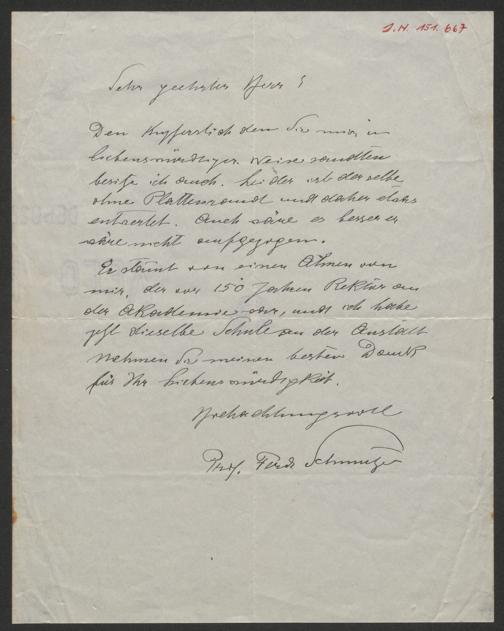 J.N. 151.667
Sehr geehrter Herr!
Den Kupferstich den Sie mir in
liebenswürdiger Weise sandten
besitze ich auch. Leider ist derselbe
ohne Plattenrand und daher etwas
entwertet. Auch wäre es besser er
wäre nicht aufgezogen.
Er stamt von einen Ahnen von
mir, der vor 150 Jahren Rektor an
der Akademie war, und ich habe
jetzt dieselbe Schule an der Anstalt
Nehmen Sie meinen besten Dank
für Ihr Liebenswürdigkeit.
Hochachtungsvoll
Prof. Ferd. Schmutzer